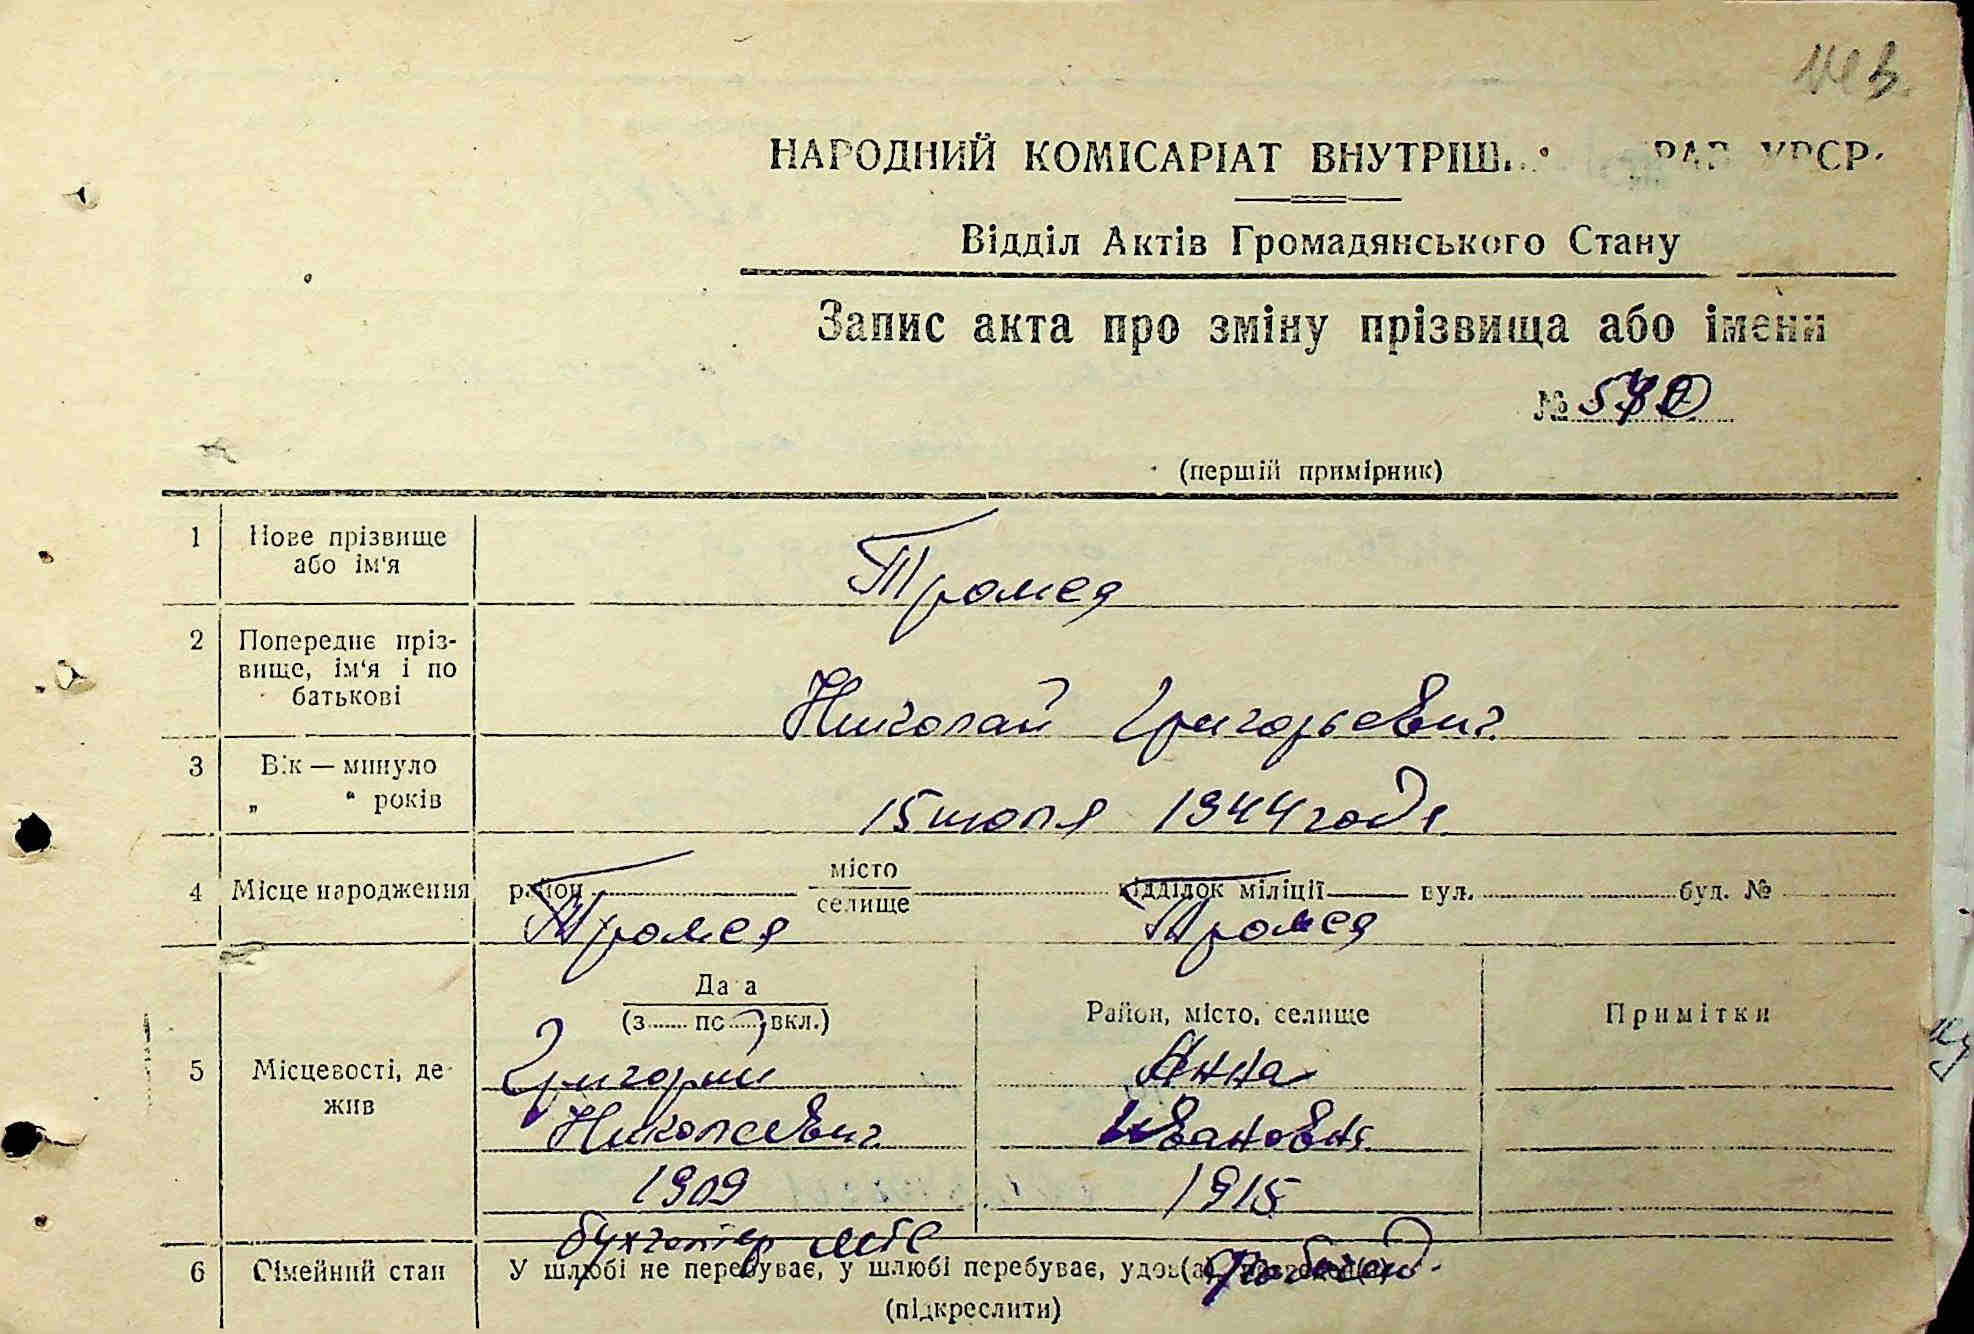 НАРОДНИЙ КОМІСАРІАТ ВНУТРІШ РАВ УРСР
Відділ Актів Громадянського Стану
Запис акта про зміну прізвища або імени
№
(перший примірник)
1 Нове прізвище або ім'я
Громея
2 Попереднє пріз-
вище, ім'я і по
батькові
Николай Григорьевич
3 Вік — минуло
„ “ років
15 июля 1944 года
4 Місце народження район місто селище відділок міліції вул. буд. №
Громея Громея
Да а
(з ...... по ......, вкл.)
Район, місто, селище
Примітки
5 Місцевості, де
жив
Григорий Анна
Николаевич Ивановна
1909 1915
бухгалтер МТС
6 Сімейний стан У шлюбі не перебуває, у шлюбі перебуває,
(підкреслити)